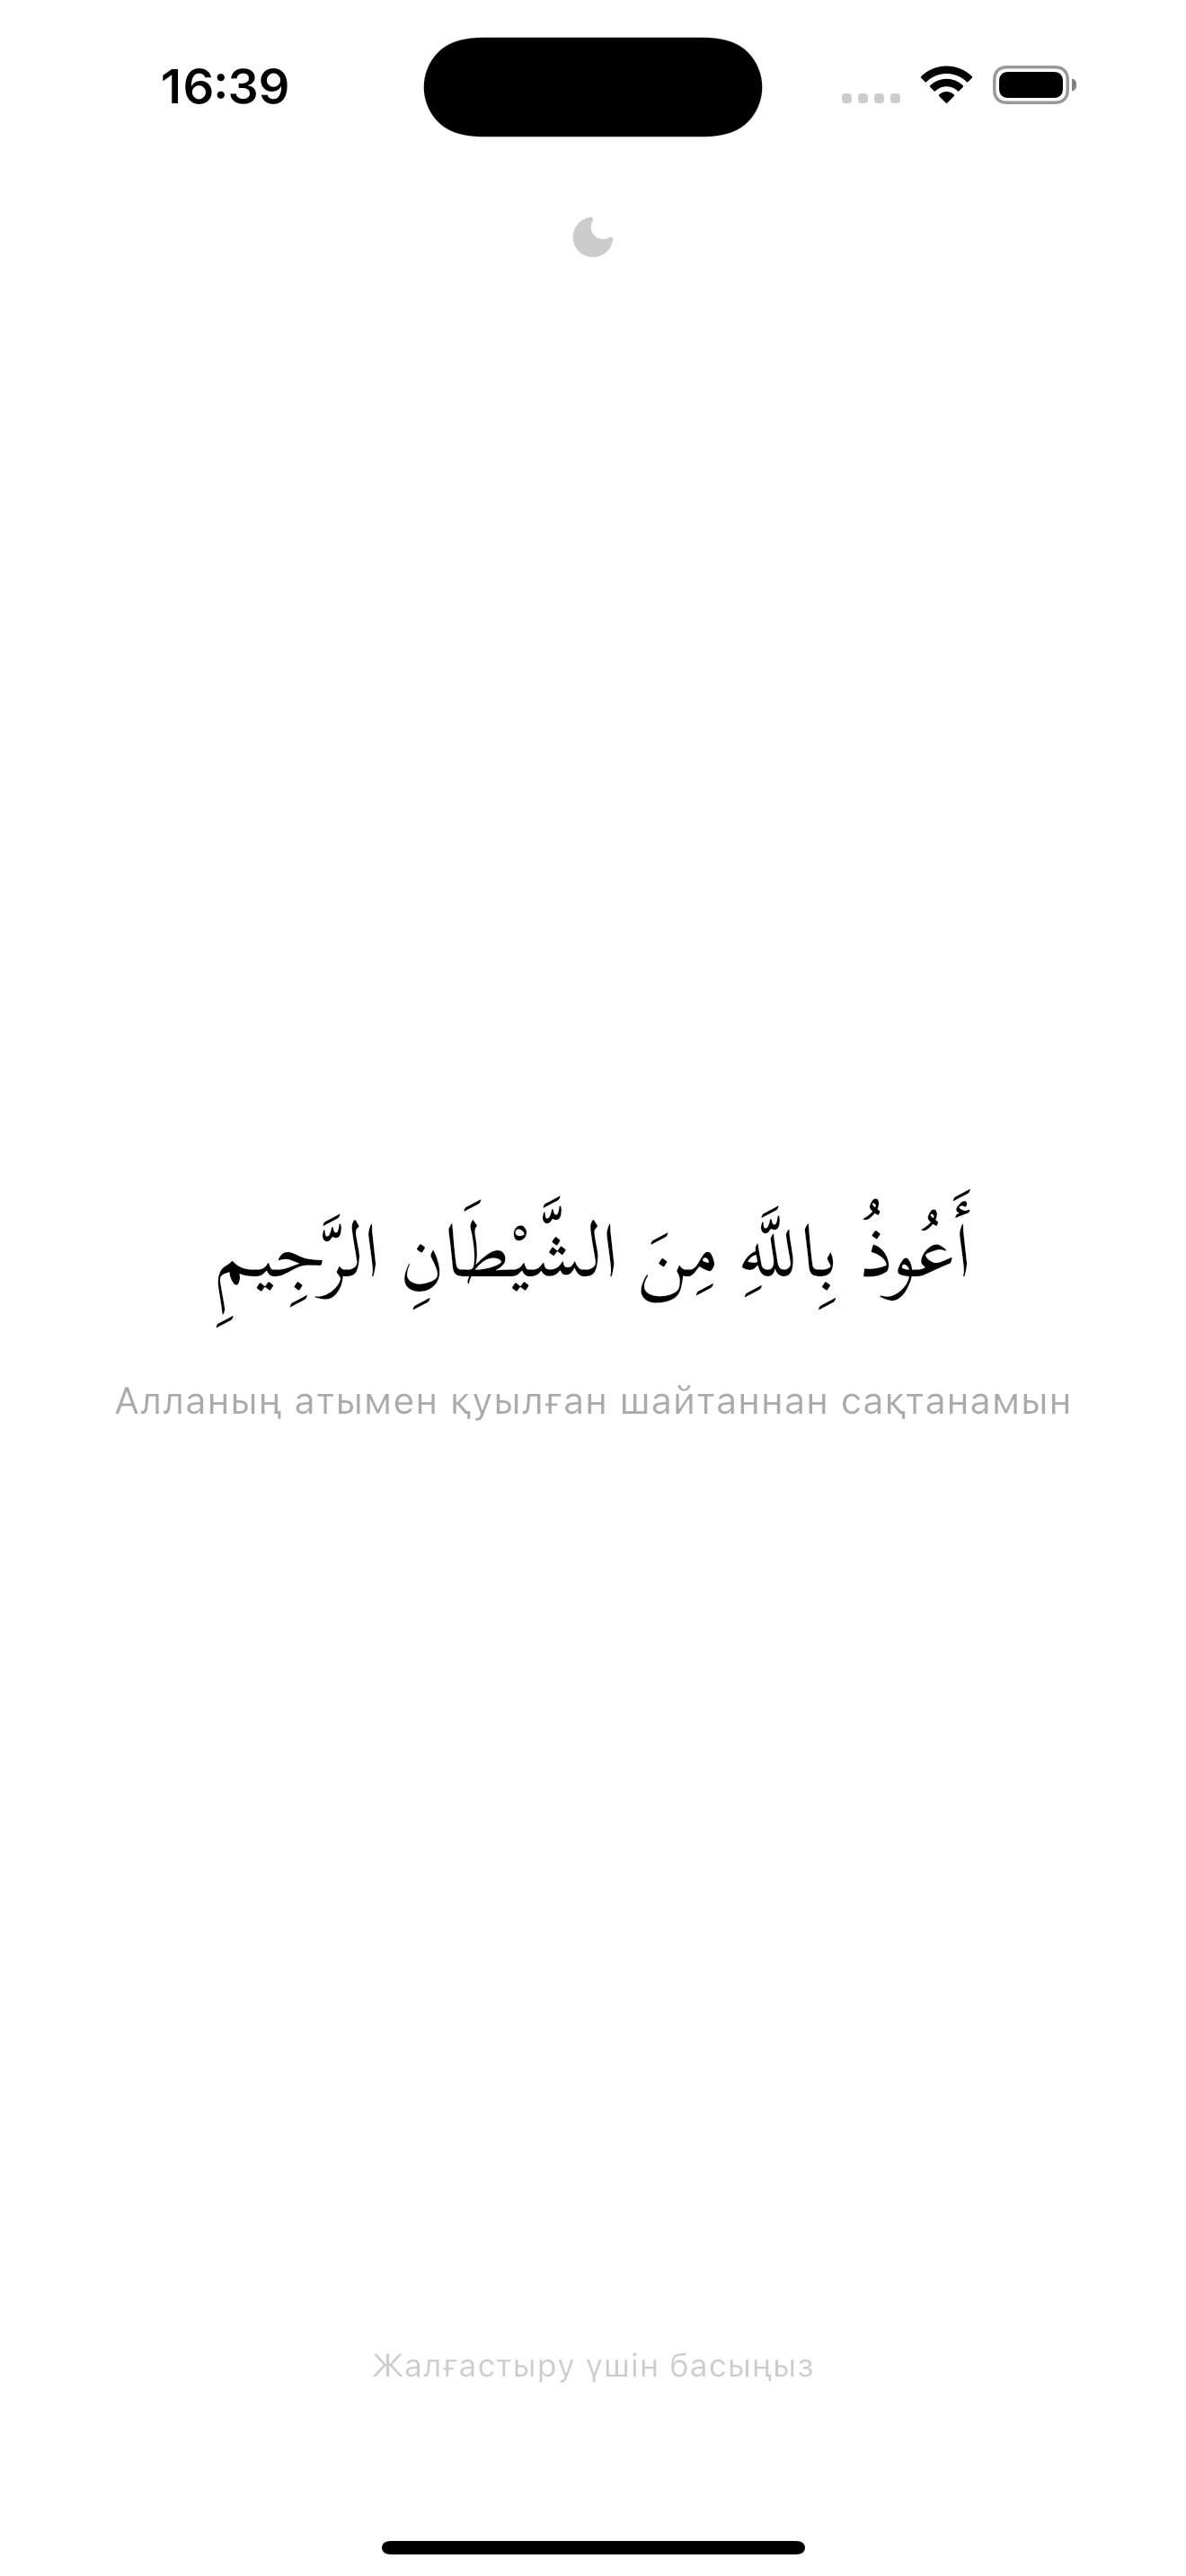 16:39
أَعُوذُ بِاللَّهِ مِنَ الشَّيْطَانِ الرَّجِيمِ
Алланың атымен қуылған шайтаннан сақтанамын
Жалғастыру үшін басыңыз